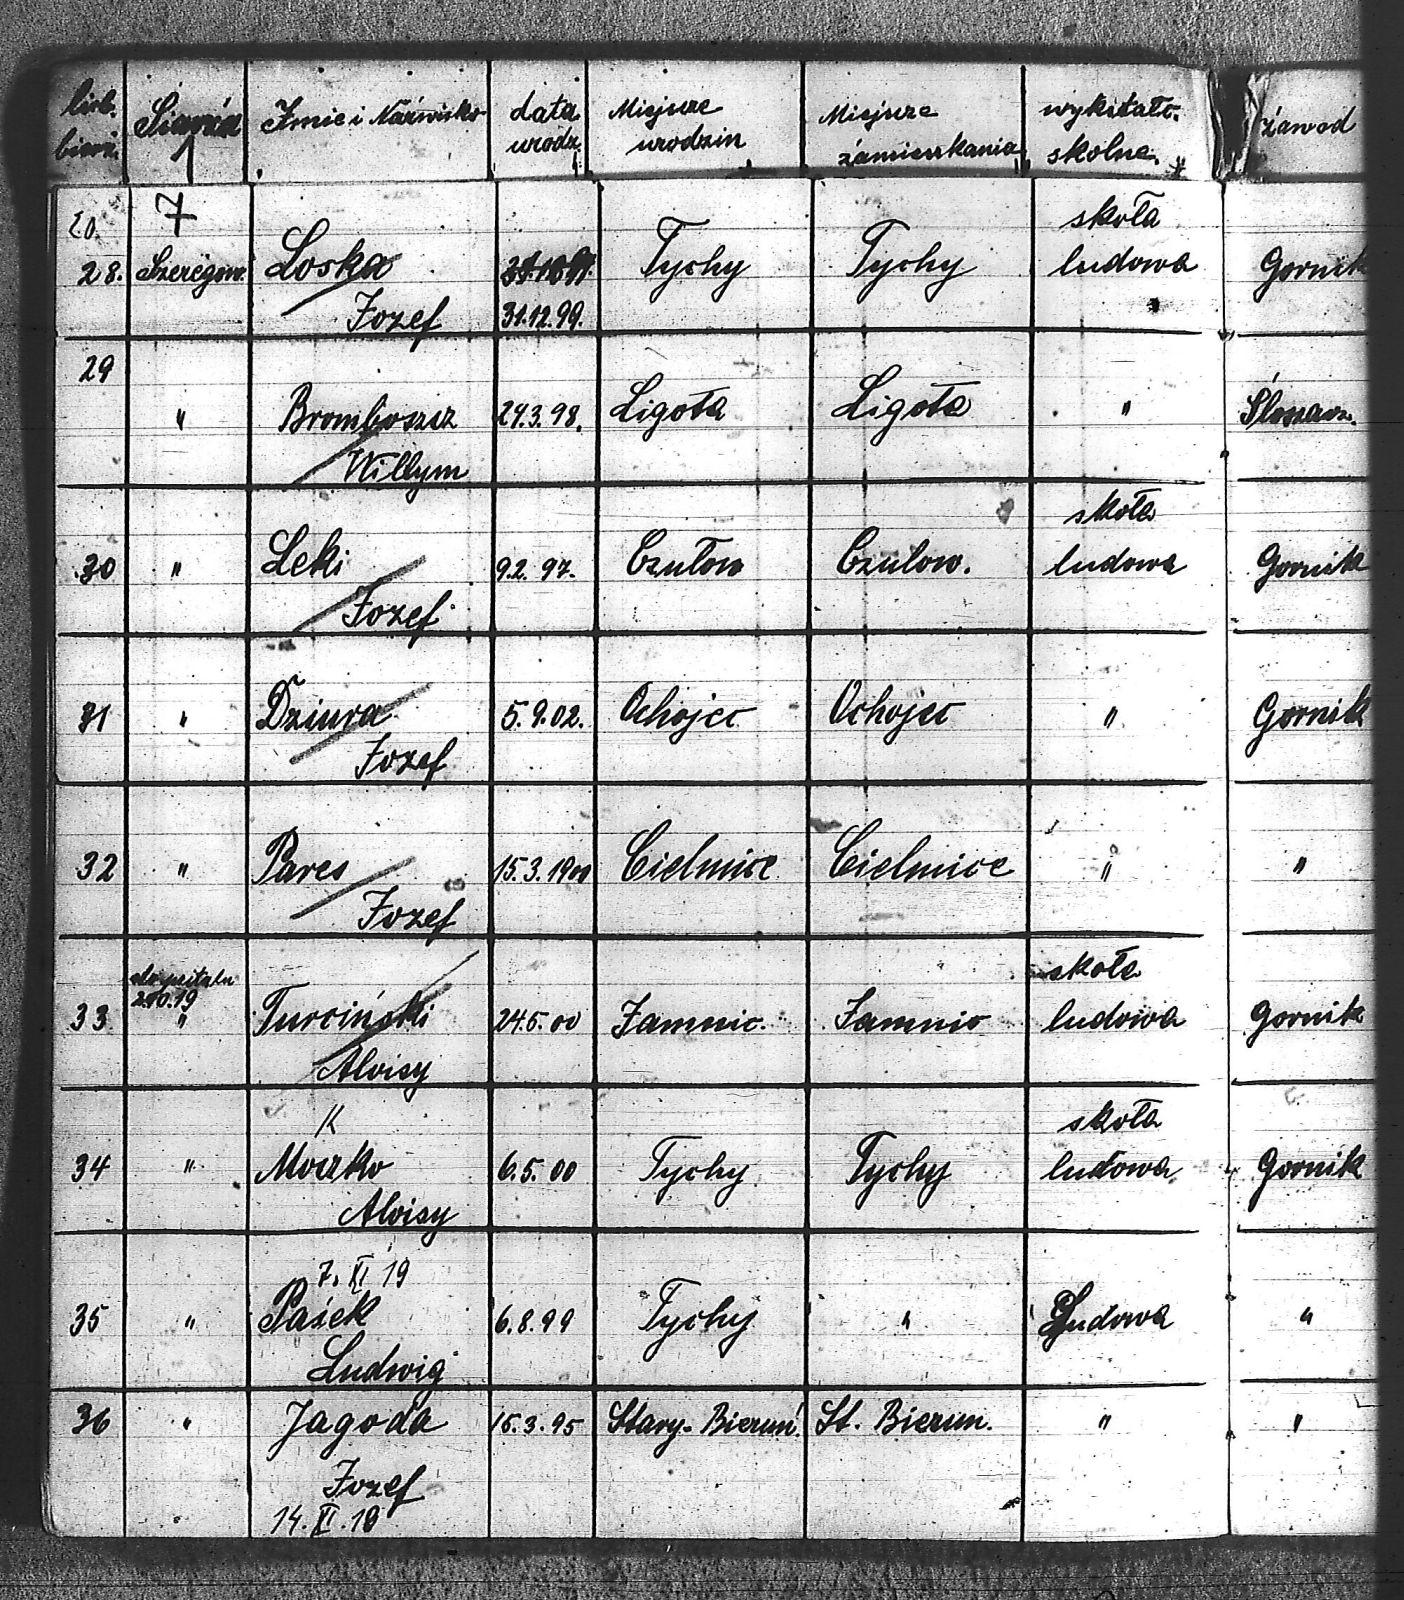 licb. bierz.
Imie i Názwisko
data urodz.
Miejsce urodzin
Miejsce zamieszkania
wykstałc. skolne.
záwod
20.
7
28. Szeregow. Loska Jozef 31.12.99. Tychy Tychy skoła ludowa Gornik
29 " Bromboszcz Willym 24.3.98. Ligota Ligota "
30 " Leki Jozef 9.2.97. Czułow Czulow. skoła ludowa Gornik
31 " Dziura Jozef 5.9.02. Ochojec Ochojec " Gornik
32 " Pares Jozef 15.3.1900 Cielmice Cielmice " "
2.10.19
33 " Turciński Aloisy 24.5.00 Jamnic. Jamnic skoła ludowa Gornik
34 " Moszko Aloisy 6.5.00 Tychy Tychy skoła ludowa Gornik
7. XI 19
35 " Pasek Ludwig 6.8.99 Tychy " Ludowa "
36 " Jagoda Jozef 15.3.95 Stary-Bieruń St. Bierun. " "
14. XI. 19